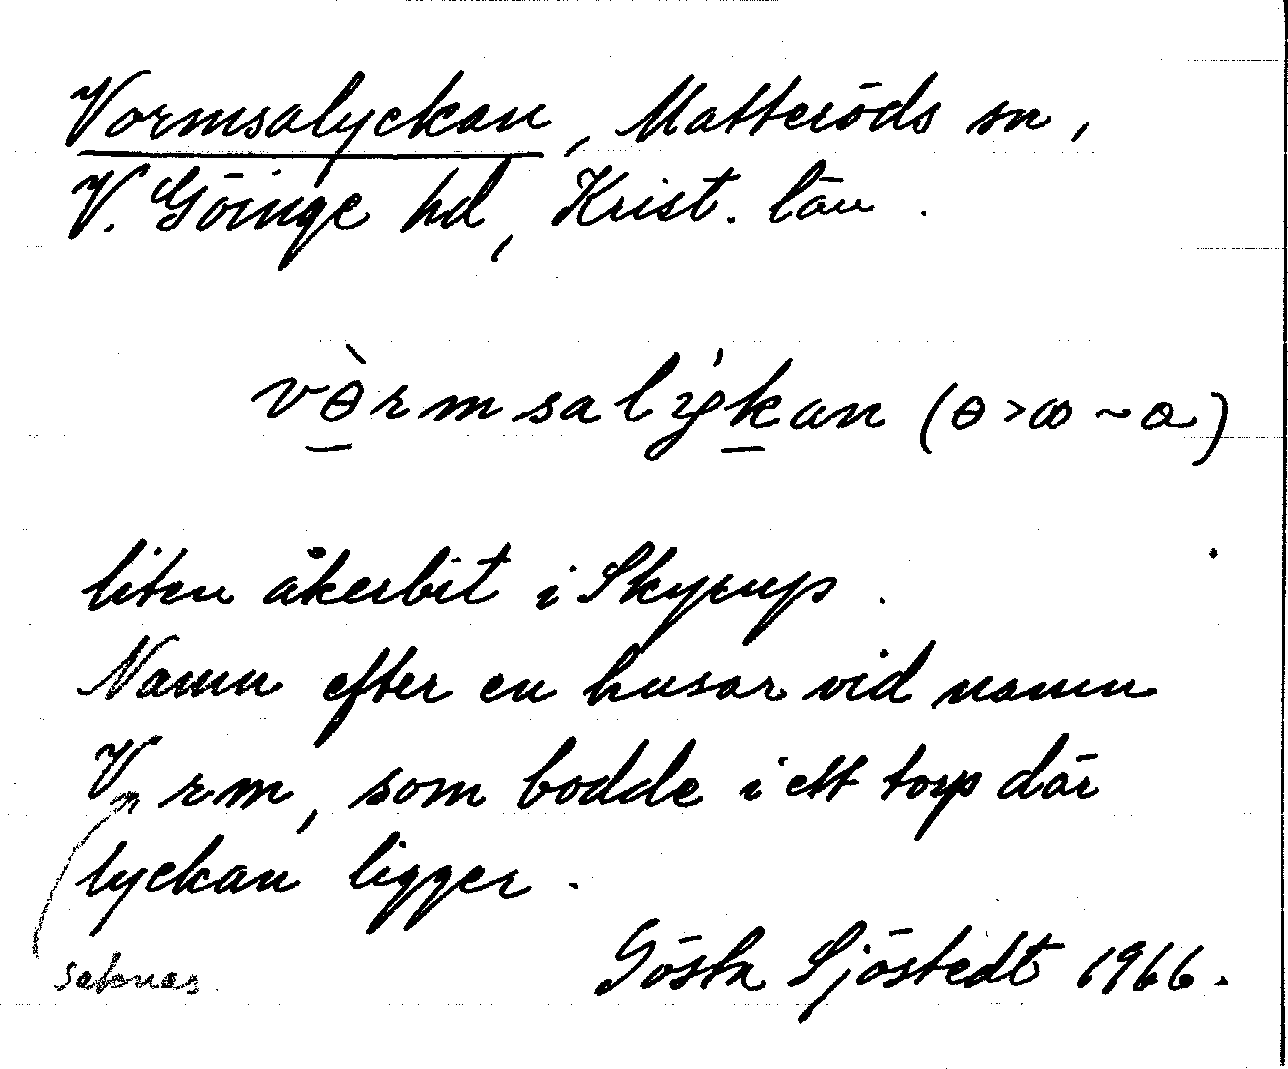 Vormsalyckan, Matteröds sn,
V. Göinge hd, Krist. län.
vɵ̀rmsalýkan (ɵ > ꝏ ~ a)
liten åkerbit i Skyrup.
Namn efter en husar vid namn
V rm, som bodde i ett torp där
lyckan ligger.
saknas
Gösta Sjöstedt 1966.